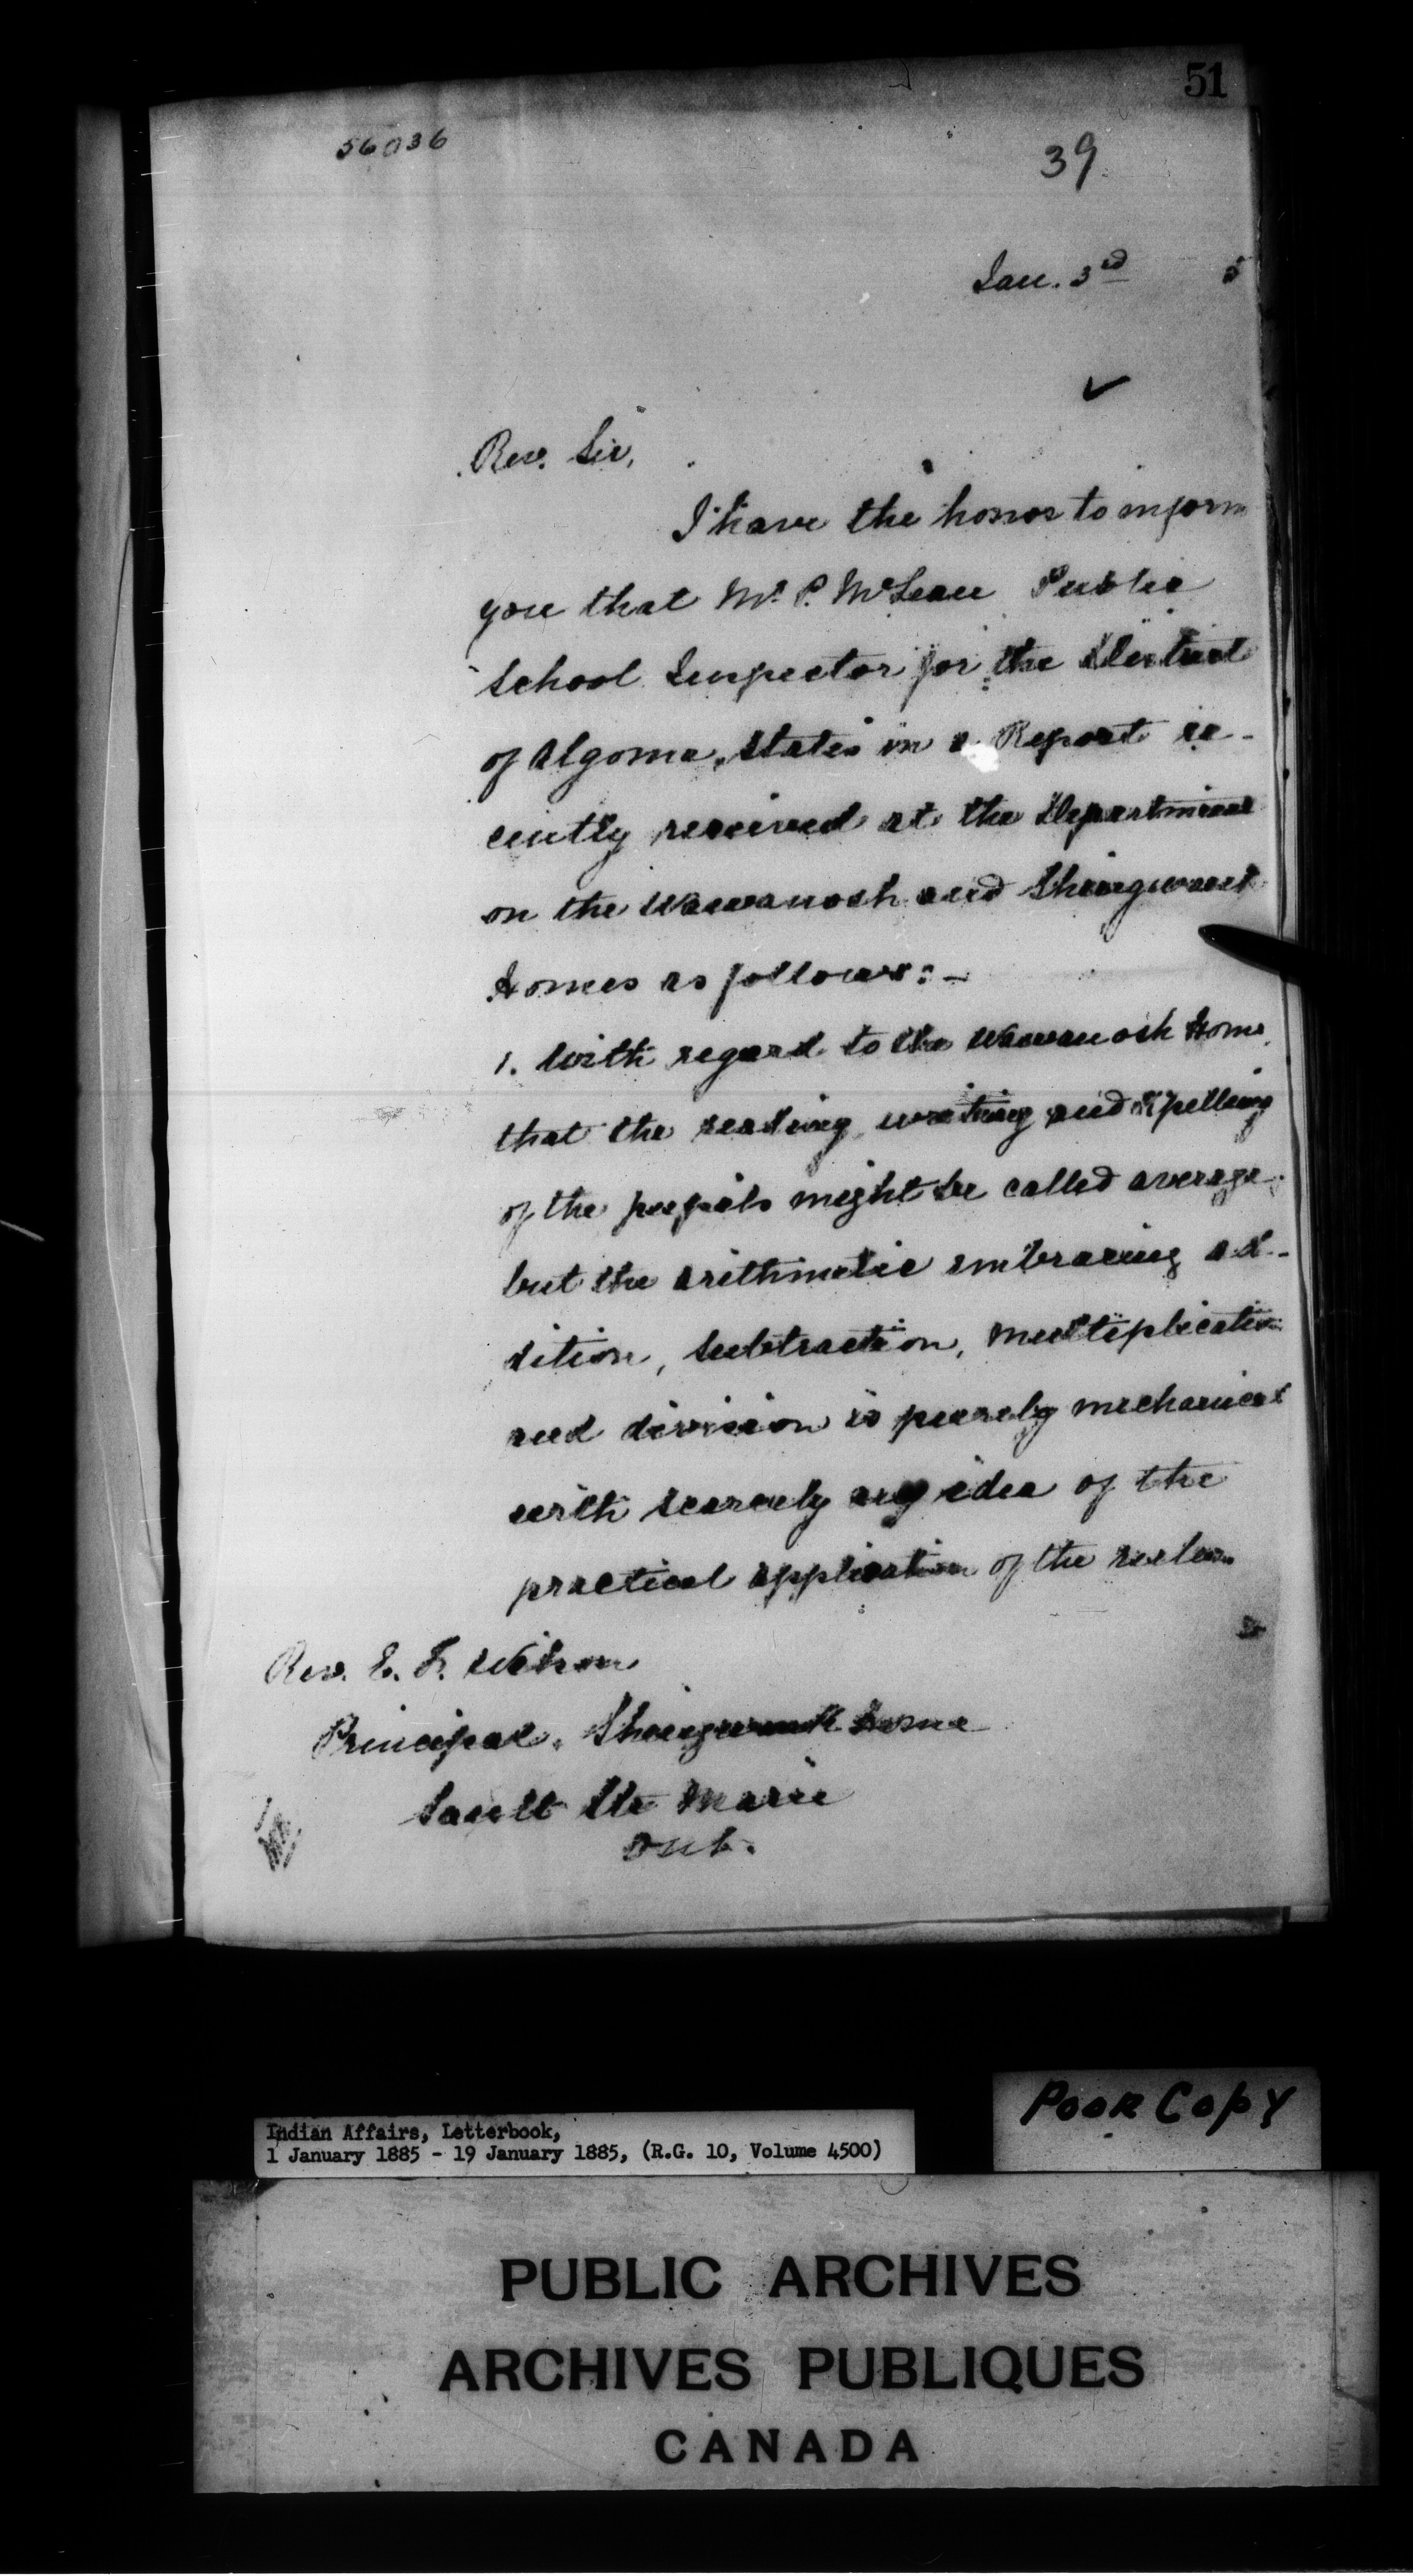 51
56036
39
Jan. 3rd 5
Rev. Sir,
I have the honor to inform
you that Mr. P. McLean Public
School Inspector for the District
of Algoma, states in a Report re-
cently received at the Department
on the Wawanosh and Shingwauk
Homes as follows:-
1. With regard to the Wawanosh Home
that the reading, writing and spelling
of the pupils might be called average
but the arithmetic embracing ad-
dition, subtraction, multiplication
and division is purely mechanical
with scarcely any idea of the
practical application of the rules.
Rev. E. F. Wilson
Principal, Shingwauk Home
Sault Ste Marie
Ont.
Poor Copy
Indian Affairs, Letterbook,
1 January 1885 - 19 January 1885, (R.G. 10, Volume 4500)
PUBLIC ARCHIVES
ARCHIVES PUBLIQUES
CANADA